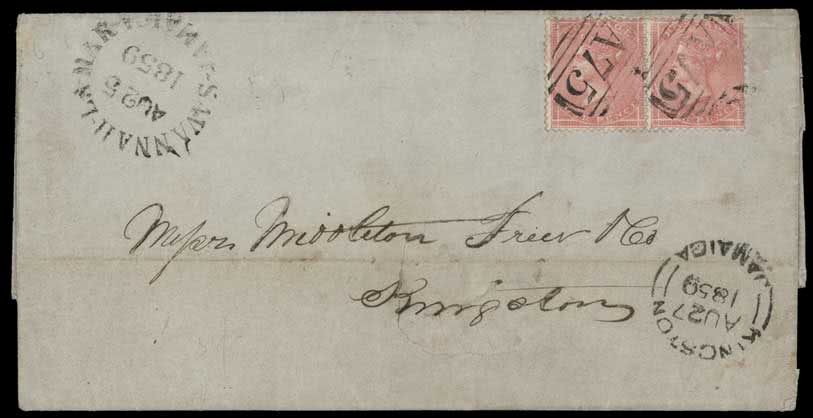 SAVANNAH-LA-MAR-JAMAICA
AU 25
1859
A75
A75
Messrs Middleton Freer & Co
Kingston
KINGSTON JAMAICA
AU 27
1859